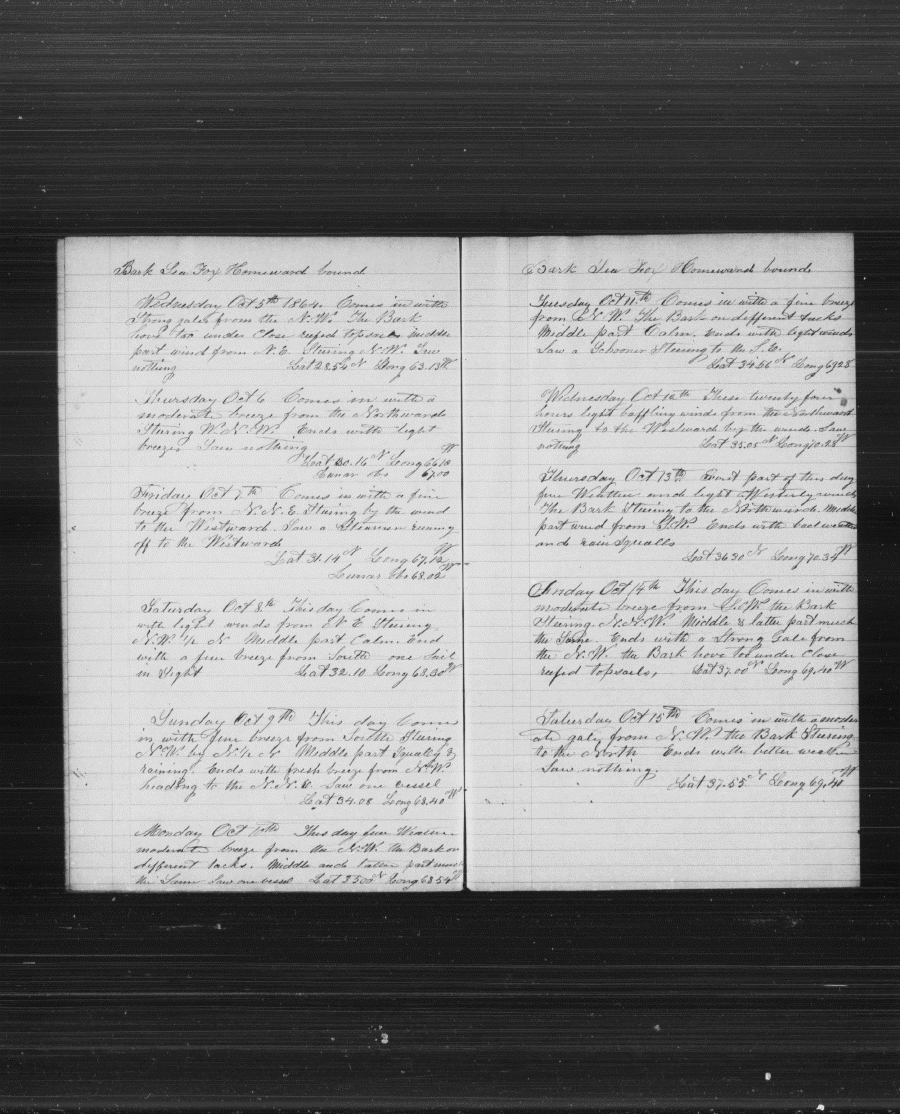 Bark Sea Fox Homeward bound
Wednesday Oct 5th 1864. Comes in with
strong gales from the N.W. The Bark
hove too under Close reefed topsails middle
part wind from N.E. Stering N.W. Saw
nothing Lat 28.54 N Long 63.13 W
Thursday Oct 6 Comes in with a
moderate breeze from the Northward
Stering W.N.W. Ends with light
breezes Saw nothing
Lat 30.16 N Long 66.18 W
Lunar obs 67.00
Friday Oct 7th Comes in with a fine
breeze from N.N.E. Stering by the wind
to the Westward. Saw a Steamer
off to the Westward
Lat 31.14 N Long 67.12 W
Lunar Obs 68.02 W
Saturday Oct 8th This day Comes in
with light winds from N E Stering
N.W. 1/2 N Middle part Calm End
with a fine breeze from South one Sail
in Sight Lat 32.10 Long 68.30 W
Sunday Oct 9th This day Comes
in with fine breeze from South Stering
N.W. by N 1/2 N Middle part Squally &
raining. Ends with fresh breeze from N.W.
heading to the N.N.E. Saw one vessel
Lat 34.08 Long 68.40 W
Monday Oct 10th This day fine Weather
moderate breeze from the N.W. the Bark on
different tacks. Middle and latter part much
the Same Saw one vessel Lat 35 00 N Long 68 54 W
Bark Sea Fox Homeward bound
Tuesday Oct 11th Comes in with a fine breeze
from N.W. The Bark on different tacks
Middle part Calm. Ends with light winds
Saw a Schooner Stering to the S.E.
Lat 34 56 N Long 69 28
Wednesday Oct 12th These twenty four
hours light baffling winds from the Northward
Stering to the Westward by the wind. Saw
nothing Lat 35.05 N Long 70.28 W
Thursday Oct 13th First part of this day
fine Weather and light Westerly winds
The Bark Stering to the Northward. Middle
part wind from S.W. Ends with bad weather
and rain Squalls
Lat 36 30 N Long 70.34 W
Friday Oct 14th This day Comes in with
moderate breeze from S.W. the Bark
Stering N.N.W. Middle & latter part much
the Same. Ends with a Strong Gale from
the N.W. the Bark hove too under Close
reefed topsails, Lat 37.00 N Long 69.40 W
Saturday Oct 15th Comes in with a moder
ate gale from N.W. the Bark Stering
to the North Ends with better weather
Saw nothing.
Lat 37.55 N Long 69.40 W